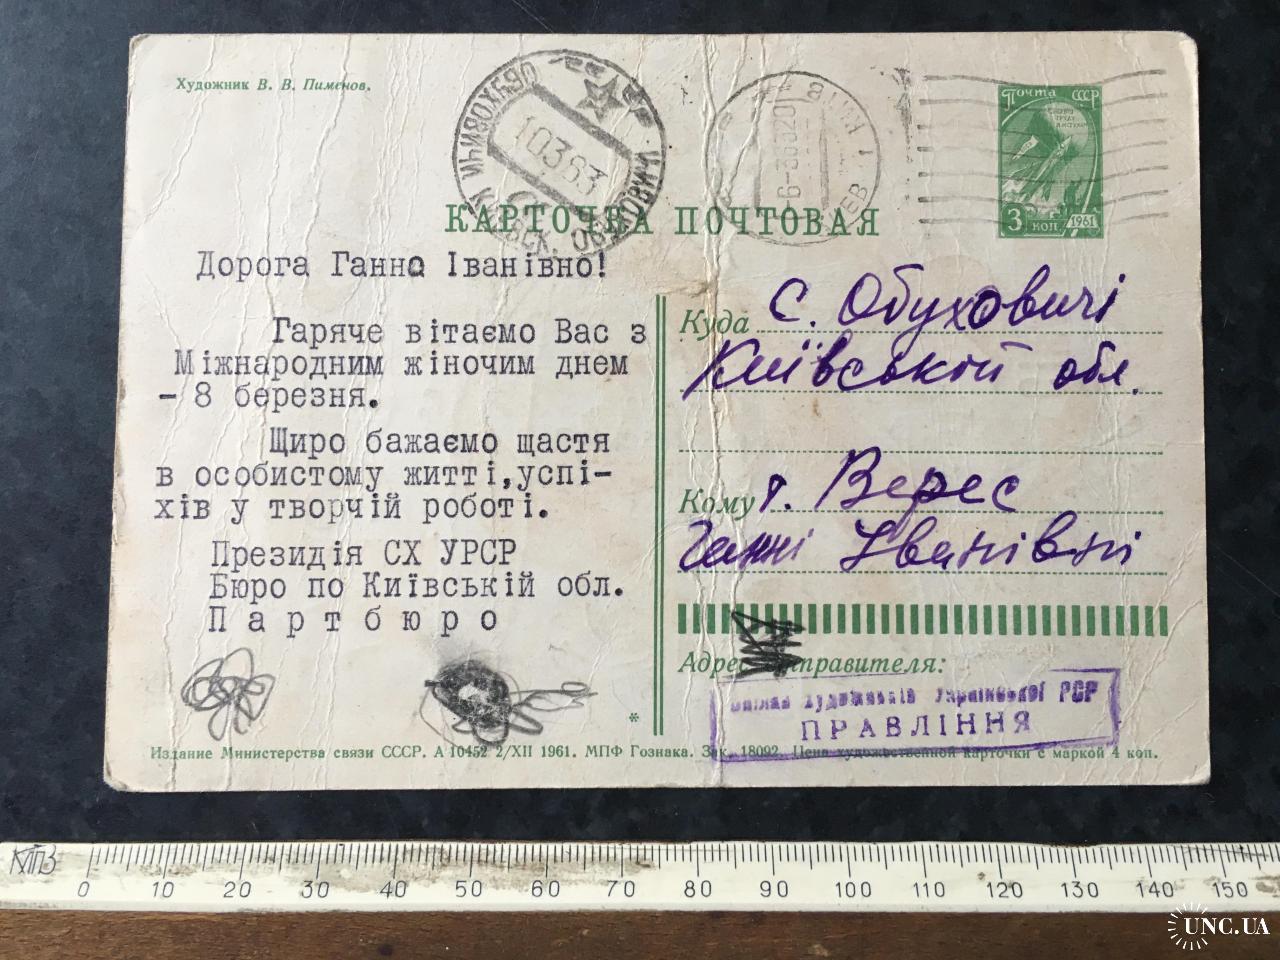 Художник В. В. Пименов.
10363
Почта СССР
3 коп 1961
КАРТОЧКА ПОЧТОВАЯ
Дорога Ганно Іванівно!
Гаряче вітаємо Вас з
Міжнародним жіночим днем
- 8 березня.
Щиро бажаємо щастя
в особистому житті,успі-
хів у творчій роботі.
Президія СХ УРСР
Бюро по Київській обл.
Партбюро
Куда с. Обуховичі
Київської обл.
Кому т. Верес
Ганні Іванівні
Адрес отправителя:
Спілка художників Української РСР
ПРАВЛІННЯ
*
Издание Министерства связи СССР. А 10452 2/XII 1961. МПФ Гознака. Зак. 18092. Цена художественной карточки с маркой 4 коп.
0 10 20 30 40 50 60 70 80 90 100 110 120 130 140 150
UNC.UA